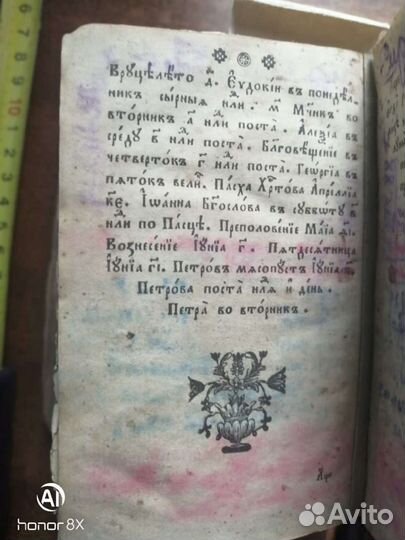 Врꙋцѣлѣто д҃. Єѵдокїи въ понедѣл
никъ сырныѧ н҃ли. м҃ Мч҃никъ во
вторникъ г҃ н҃ли поста. Алеѯїа въ
средꙋ н҃ли поста. Благовѣщенїе въ
четвертокъ н҃ли поста. Геѡргїа въ
пѧтокъ вели́. Пасха Хрⷭ҇това Апреллїа
к҃є. Іѡанна Бг҃ослова въ сꙋбботꙋ в҃
н҃ли по Пасцѣ. Преполовенїе Маїа
Вознесенїе Іꙋнїа г҃. Пѧтдесѧтница
Іꙋнїа г҃і. Петровъ мѧсопꙋстъ Іꙋнїа
Петрова поста н҃лѧ и день.
Петра во вторникъ.
6 7 8 9 10 11
AI
honor 8X
Avito